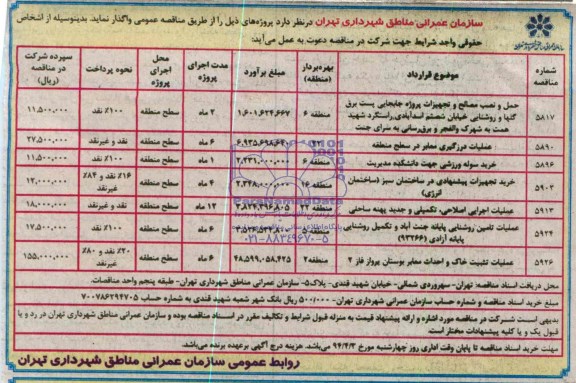 سازمان عمرانی مناطق شهرداری تهران درنظر دارد پروژه‌های ذیل را از طریق مناقصه عمومی واگذار نماید. بدینوسیله از اشخاص
حقوقی واجد شرایط جهت شرکت در مناقصه دعوت به عمل می‌آید:
شماره مناقصه موضوع قرارداد بهره‌بردار (منطقه) مبلغ برآورد مدت اجرای پروژه محل اجرای پروژه نحوه پرداخت سپرده شرکت در مناقصه (ریال)
۵۸۱۷ حمل و نصب مصالح و تجهیزات پروژه جابجایی پست برق گلها و روشنایی خیابان شصتم اسدآبادی، راستگرد شهید همت به شهرک والفجر و برق‌رسانی به سرای جنت منطقه ۶ ۱،۶۰۱،۶۲۴،۶۶۷ ۲ ماه سطح منطقه ۱۰۰٪ نقد ۱۱،۵۰۰،۰۰۰
۵۸۹۰ عملیات درزگیری معابر در سطح منطقه ۶ ماه سطح منطقه نقد و غیرنقد ۲۷،۵۰۰،۰۰۰
۵۸۹۶ خرید سوله ورزشی جهت دانشکده مدیریت منطقه ۶ ۱ ماه سطح منطقه ۱۰۰٪ نقد ۱۱،۵۰۰،۰۰۰
۵۹۰۲ خرید تجهیزات پیشنهادی در ساختمان سبز (ساختمان انرژی) منطقه ۱۶ ۴ ماه سطح منطقه ۱۶٪ نقد و ۸۴٪ غیرنقد ۱۲،۰۰۰،۰۰۰
۵۹۱۳ عملیات اجرایی اصلاحی، تکمیلی و جدید پهنه ساحلی منطقه ۲۲ ۱۲ ماه سطح منطقه نقد و غیرنقد ۱۸،۰۰۰،۰۰۰
۵۹۲۴ عملیات تامین روشنایی پایانه جنت آباد و تکمیل روشنایی پایانه آزادی (۹۳۲۶۶) منطقه ۵ ۶ ماه سطح منطقه ۱۰۰٪ نقد ۱۷،۵۰۰،۰۰۰
۵۹۲۶ عملیات تثبیت خاک و احداث معابر بوستان پرواز فاز ۲ منطقه ۲ ۴۸،۵۹۹،۰۵۸،۴۲۵ ۶ ماه سطح منطقه ۲۰٪ نقد و ۸۰٪ غیرنقد ۱۵۵،۰۰۰،۰۰۰
ParsNamadData
۰۲۱-۸۸۳۴۹۶۷۰-۵
محل دریافت اسناد مناقصه: تهران- سهروردی شمالی- خیابان شهید قندی- پلاک۵- سازمان عمرانی مناطق شهرداری تهران- طبقه پنجم واحد مناقصات.
مبلغ خرید اسناد مناقصه و شماره حساب سازمان عمرانی شهرداری تهران- ۵۰۰/۰۰۰ ریال بانک شهر شعبه شهید قندی به شماره حساب ۷۰۰۷۸۶۲۹۴۷۰۵
بدیهی است شرکت در مناقصه مورد اشاره و ارائه پیشنهاد قیمت به منزله قبول شرایط و تکالیف مقرر در اسناد مناقصه بوده و سازمان عمرانی مناطق شهرداری تهران در رد و یا
قبول یک و یا کلیه پیشنهادات مختار است.
مهلت خرید اسناد مناقصه تا پایان وقت اداری روز چهارشنبه مورخ ۹۴/۴/۳ می‌باشد. هزینه درج آگهی برعهده برنده می‌باشد.
روابط عمومی سازمان عمرانی مناطق شهرداری تهران